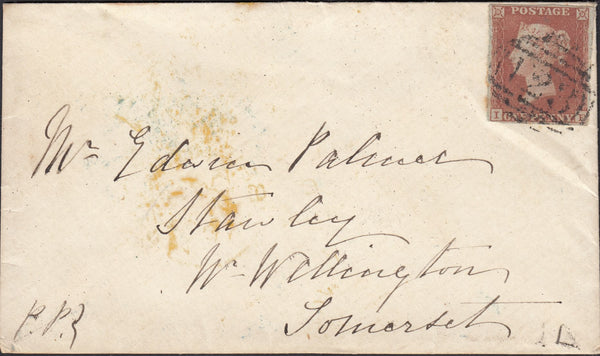 POSTAGE
Mr Edwin Palmer
Stawley
Nr Wellington
Somerset
P.P.
L